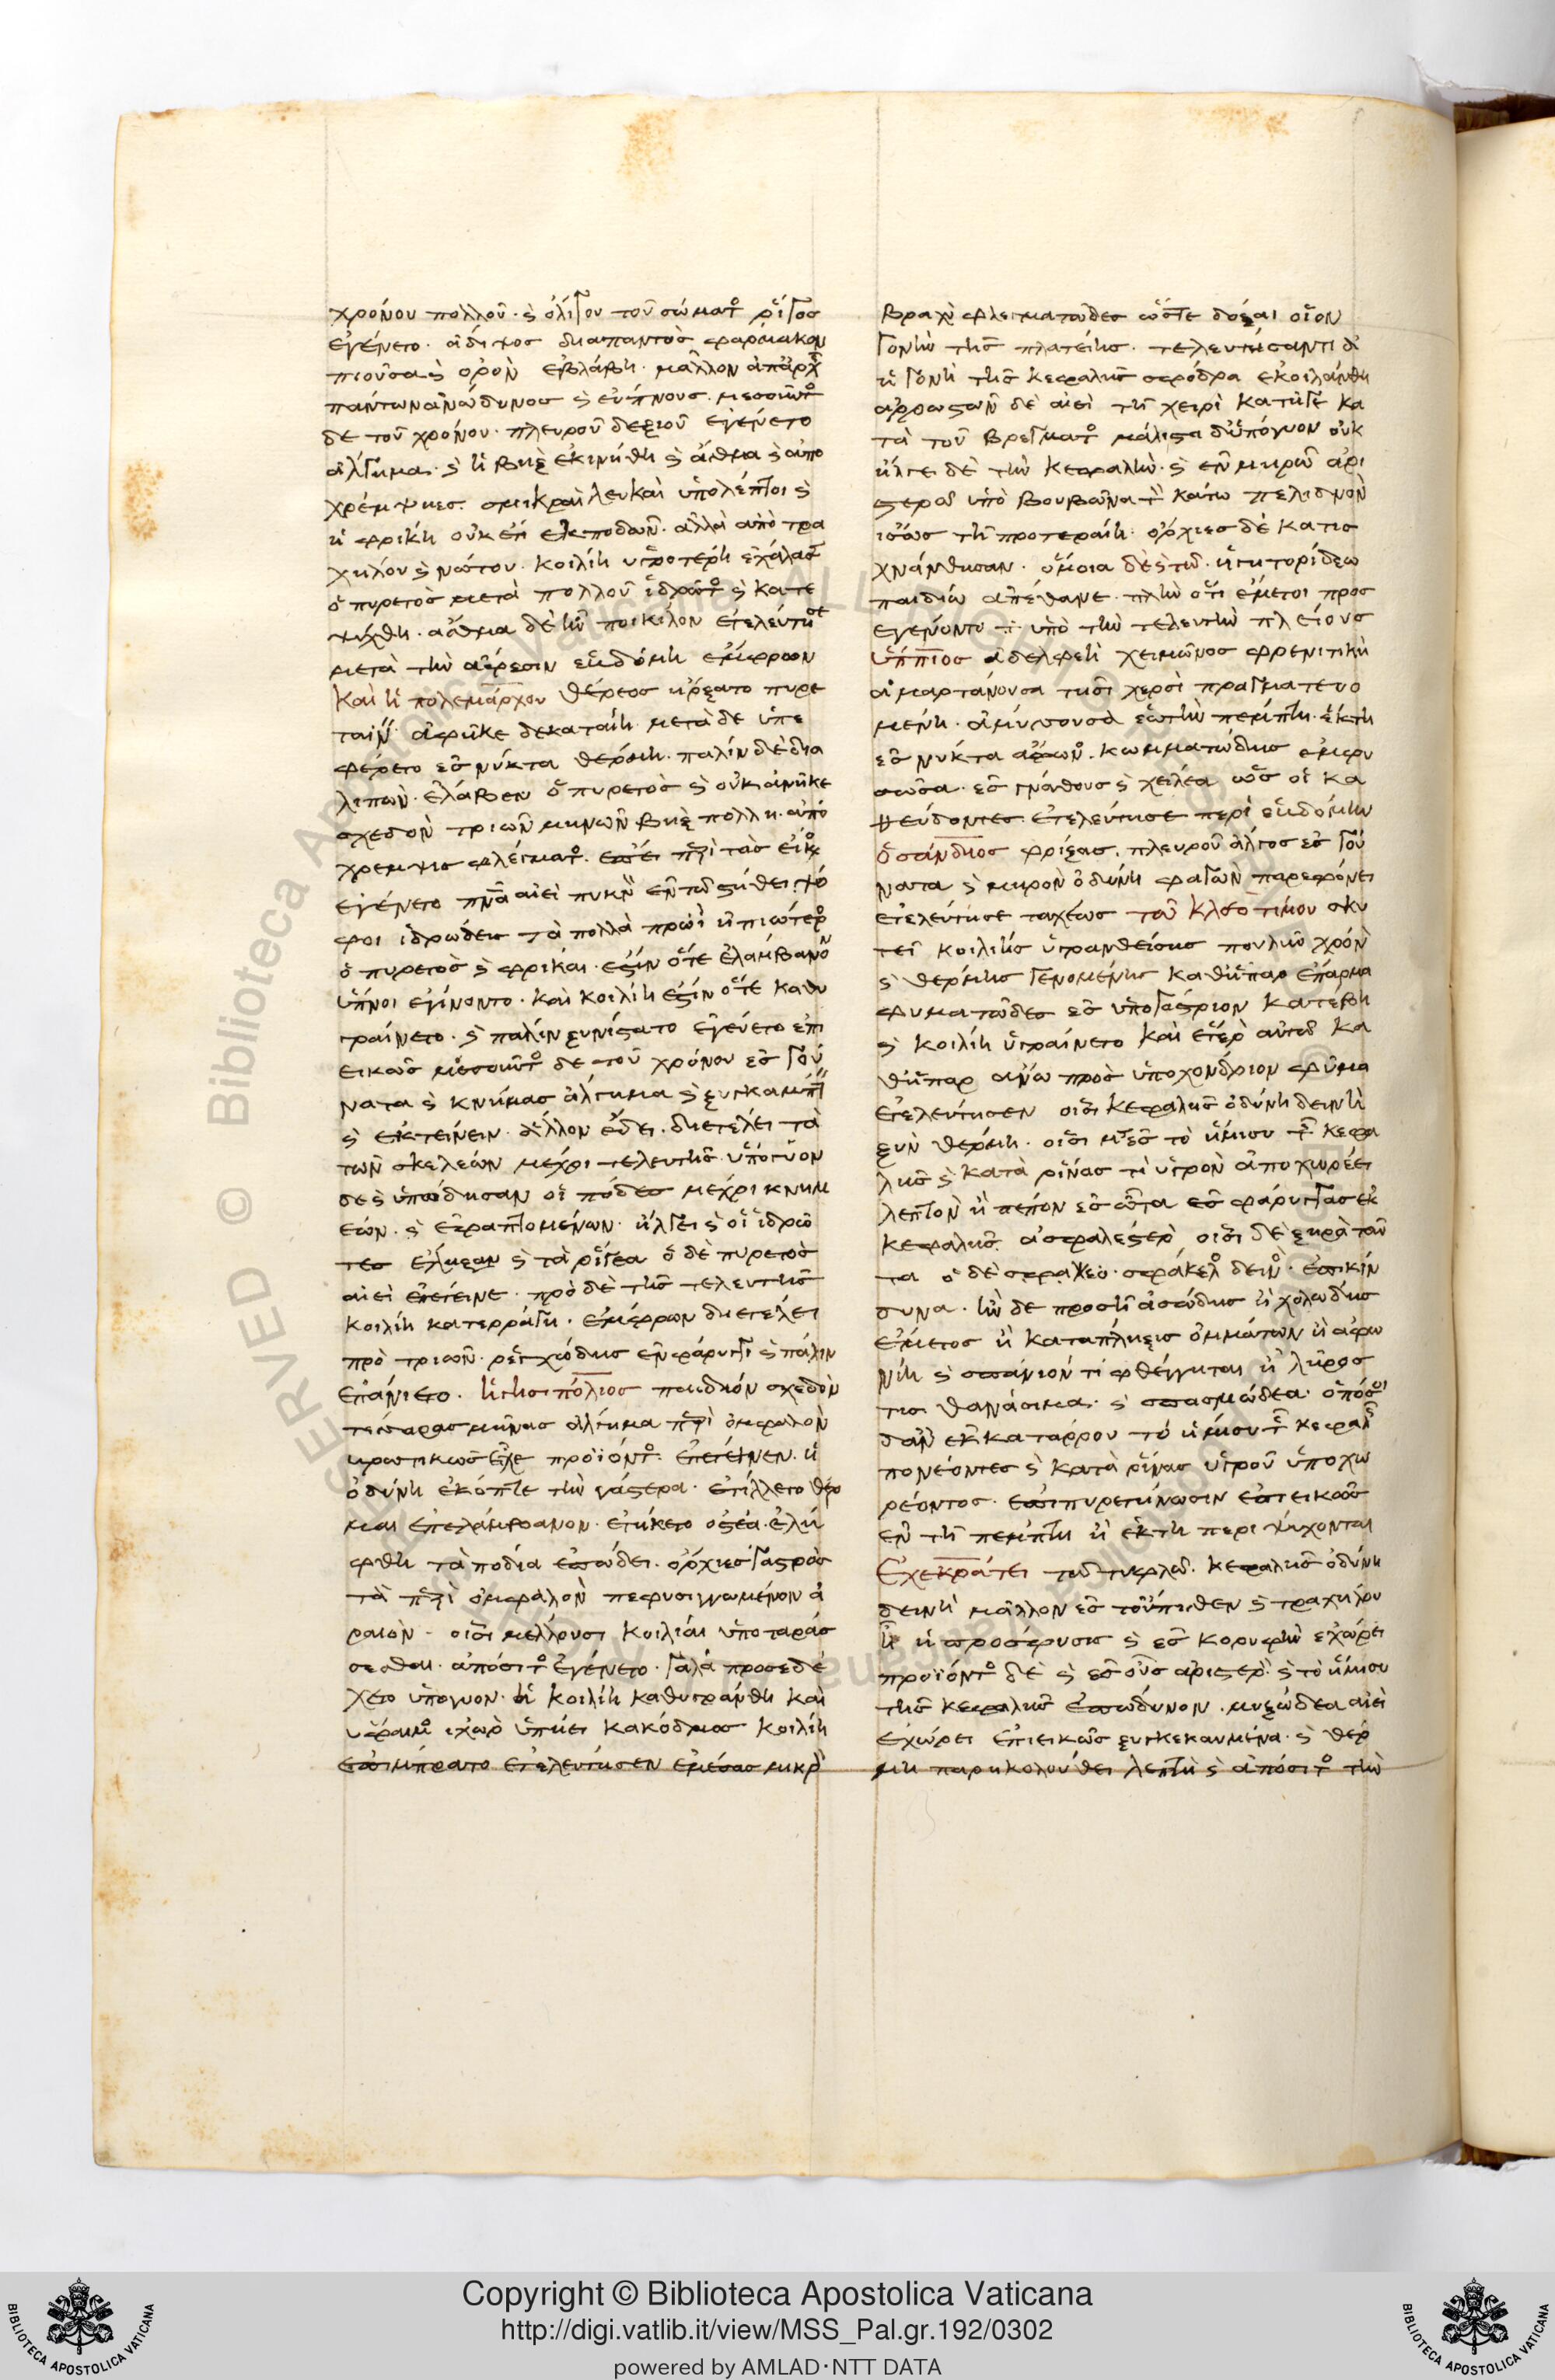 χρόνου πολλοῦ· ϗ ὀλίγον τοῦ σώματ ῥῖγος
ἐγένετο· ἄδιψος διαπαντὸς φάρμακον
πιοῦσα ϗ ὀρὸν ἐβλάβη· μᾶλλον ἀπ ἀρχ
πάντων ἀνώδυνος ϗ εὔπνους· μεσοῦντ
δὲ τοῦ χρόνου· πλευροῦ δεξιοῦ ἐγένετο
ἄλγημα· ϗ ἡ βὴξ ἐκινήθη ϗ ἄσθμα ϗ ἀπο
χρέμψιες σμικραὶ λευκαὶ ὑπόλεπτοι ϗ
ἡ φρίκη οὐκ ἔτι ἐκ ποδῶν· ἀλλὰ ἀπὸ τρα
χήλου ϗ νώτου· κοιλίη ὑγροτέρη ἐχάλασ
ὁ πυρετὸς μετὰ πολλοῦ ἱδρῶτ ϗ κατε
ψύχθη· ἄσθμα δὲ ἦν ποικίλον ἐτελεύτησε
μετὰ τὴν ἄφεσιν ἑβδόμη ἔμφρων
Καὶ ἡ πολεμάρχου θέρεος ἤρξατο πυρε
ταίν· ἀφῆκε δεκαταίη· μετὰ δὲ ὑπε
φέρετο ἐς νύκτα θέρμη· πάλιν δὲ δια
λιπὼν· ἔλαβεν ὁ πυρετὸς ϗ οὐκ ἀνῆκε
σχεδὸν τριῶν μηνῶν βὴξ πολλὴ· ἀπό
χρεμψις φλέγματ· ἐπεὶ περὶ τὰς εἴκ
ἐγένετο πνα αἰεὶ πυκν ἐν τῶ στήθει· ψό
φοι ἱδρώδεις τὰ πολλὰ πρωὶ ἠπιώτερ
ὁ πυρετὸς ϗ φρίκαι· ἔστιν ὅτε ἐλάμβανον
ὕπνοι ἐγίνοντο· καὶ κοιλίη ἔστιν ὅτε καθυ
γραίνετο· ϗ πάλιν ξυνίστατο ἐγεύετο ἐπι
εικῶς μεσοῦντ δὲ τοῦ χρόνου ἐς γού
νατα ϗ κνήμας ἄλγημα ϗ ξυγκάμπτ
ϗ ἐκτείνειν· ἄλλον ἔδει· διετέλει τὰ
τῶν σκελέων μέχρι τελευτῆς· ὑπόγυον
δὲ ϗ ὑπῴδησαν οἱ πόδες μέχρι κνημ
έων· ϗ ἐγραπτομένων· ἤλγει ϗ οἱ ἱδρῶ
τες ἔληξαν ϗ τὰ ῥίγεα ὁ δὲ πυρετὸς
αἰεὶ ἐπέτεινε· πρὸ δὲ τῆς τελευτῆς
κοιλίη κατερράγη· ἔμφρων διετέλει
πρὸ τριῶν· ῥεγχώδης ἐν φάρυγγι ϗ πάλιν
ἐπάνιετο· ἡγησιπόλιος παιδίον σχεδὸν
τέσσαρας μῆνας ἄλγημα περὶ ὀμφαλὸν
βρωτικῶς εἶχε προϊόντ· ἐπέτεινεν· ἡ
ὀδύνη ἐκόπτε τὴν γαστέρα· ἐτίλλετο θέρ
μαι ἐπελάμβανον· ἐτήκετο ὀστέα· ἐλή
φθη τὰ πόδια ἐπῴδει· ὄρχιες γαστρὸς
τὰ περὶ ὀμφαλὸν πεφυσιγγωμένον ἀ
ραιὸν· οἷσι μέλλουσι κοιλίαι ὑποταράσ
σεσθαι· ἀπόσιτ ἐγένετο· γάλα προσεδέ
χετο ὑπόγυον· ἡ κοιλίη καθυγράνθη καὶ
ὕφαιμ ἰχὼρ ὑπῄει κάκοδμος κοιλίη
ἐπίμπρατο ἐτελεύτησεν ἐμέσας μικρ
βραχὺ φλεγματῶδες ὥστε δόξαι οἷον
γονὴν τῆς πλατείης· τελευτήσαντι δ
ἡ γονὴ τῆς κεφαλῆς σφόδρα ἐκοιλάνθη
ἀρρωστῶν δὲ αἰεὶ τῇ χειρὶ κατῆγε κα
τὰ τοῦ βρέγματ μάλιστα δ ὑπόγυον οὐκ
ἤλγε δὲ τὴν κεφαλὴν· ϗ ἐν μηρῶ ἀρι
στερῶ ὑπὸ βουβῶνα τ κάτω πελιδνὸν
ἰσώως τῇ προτεραίη· ὄρχιες δὲ κατισ
χνάνθησαν· ὅμοια δὲ ϗ τῶ ἡγητορίδεω
παιδίω ἀπέθανε· πλὴν ὅτι ἔμετοι προσ
εγένοντο τι ὑπὸ τὴν τελευτὴν πλείους
ὕππιος ἀδελφεὴ χειμῶνος φρενιτικὴ
ἁμαρτάνουσα τῇσι χερσὶ πραγματευο
μένη· ἀμύσσουσα ἑωυτὴν πέμπτη· ἕκτη
ἐς νύκτα ἄφων· κωμματώδης ἐμφυ
σῶσα· ἐς γνάθους ϗ χείλεα ὡς οἱ κα
θεύδοντες ἐτελεύτησε περὶ ἑβδόμην
ὁ σάνδιος φρίξας· πλευροῦ ἄλγος ἐς γού
νατα ϗ μηρὸν ὀδύνη φαγὼν παρεφρόνει
ἐτελεύτησε ταχέως τοῦ κλεοτίμου σκυ
τεῖ κοιλίης ὑγρανθείσης πουλὺν χρόν
ϗ θέρμης γενομένης καθ ἧπαρ ἔπαρμα
φυματῶδες ἐς ὑπογάστριον κατέβη
ϗ κοιλίη ὑγραίνετο καὶ ἕτερ αὐτοῦ κα
θ ἧπαρ ἄνω πρὸς ὑποχόνδριον φῦμα
ἐτελεύτησεν οἷσι κεφαλῆς ὀδύνη δεινὴ
ξὺν θέρμη· οἷσι μ ἐς τὸ ἥμισυ τ κεφα
λῆς ϗ κατὰ ῥῖνας τι ὑγρὸν ἀποχωρέει
λεπτὸν ἢ πέπον ἐς ὦτα ἐς φάρυγγας ἐκ
κεφαλῆς ἀσφαλέστερ οἷσι δὲ ξηρὰ ταῦ
τα ὁ δὲ σφαλερ· σφάκελ δειν· ἐπικίν
δυνα· ἢν δὲ προσῇ ἀσώδης ἢ χολώδης
ἔμετος ἢ κατάπληξις ὀμμάτων ἢ ἀφω
νίη ϗ σπάνιόν τι φθέγγηται ἢ λῆρος
τις θανάσιμα· ϗ σπασμώδεα· ὁπόσοι
δ ἂν ἐκ καταρρου τὸ ἥμισυ τ κεφαλ
πονέοντες ϗ κατὰ ῥῖνας ὑγροῦ ὑποχω
ρέοντος· ἐπιπυρετήνωσιν ἐπιεικῶς
ἐν τῇ πέμπτη ἢ ἕκτη περιψύχονται
Ἐχεκράτει τῶ τυφλῶ· κεφαλῆς ὀδύνη
δεινὴ μᾶλλον ἐς τοὔπισθεν ϗ τραχήλου
ᾗ ἡ πρόσφυσις ϗ ἐς κορυφὴν ἐχώρει
προϊόντ δὲ ϗ ἐς οὖς ἀριστερ ϗ τὸ ἥμισυ
τῆς κεφαλῆς ἐπώδυνον· μυξώδεα αἰεὶ
ἐχώρει ἐπιεικῶς ξυγκεκαυμένα· ϗ θέρ
μη παρηκολούθει λεπτὴ ϗ ἀπόσιτ τὴν
Copyright © Biblioteca Apostolica Vaticana
http://digi.vatlib.it/view/MSS_Pal.gr.192/0302
powered by AMLAD·NTT DATA